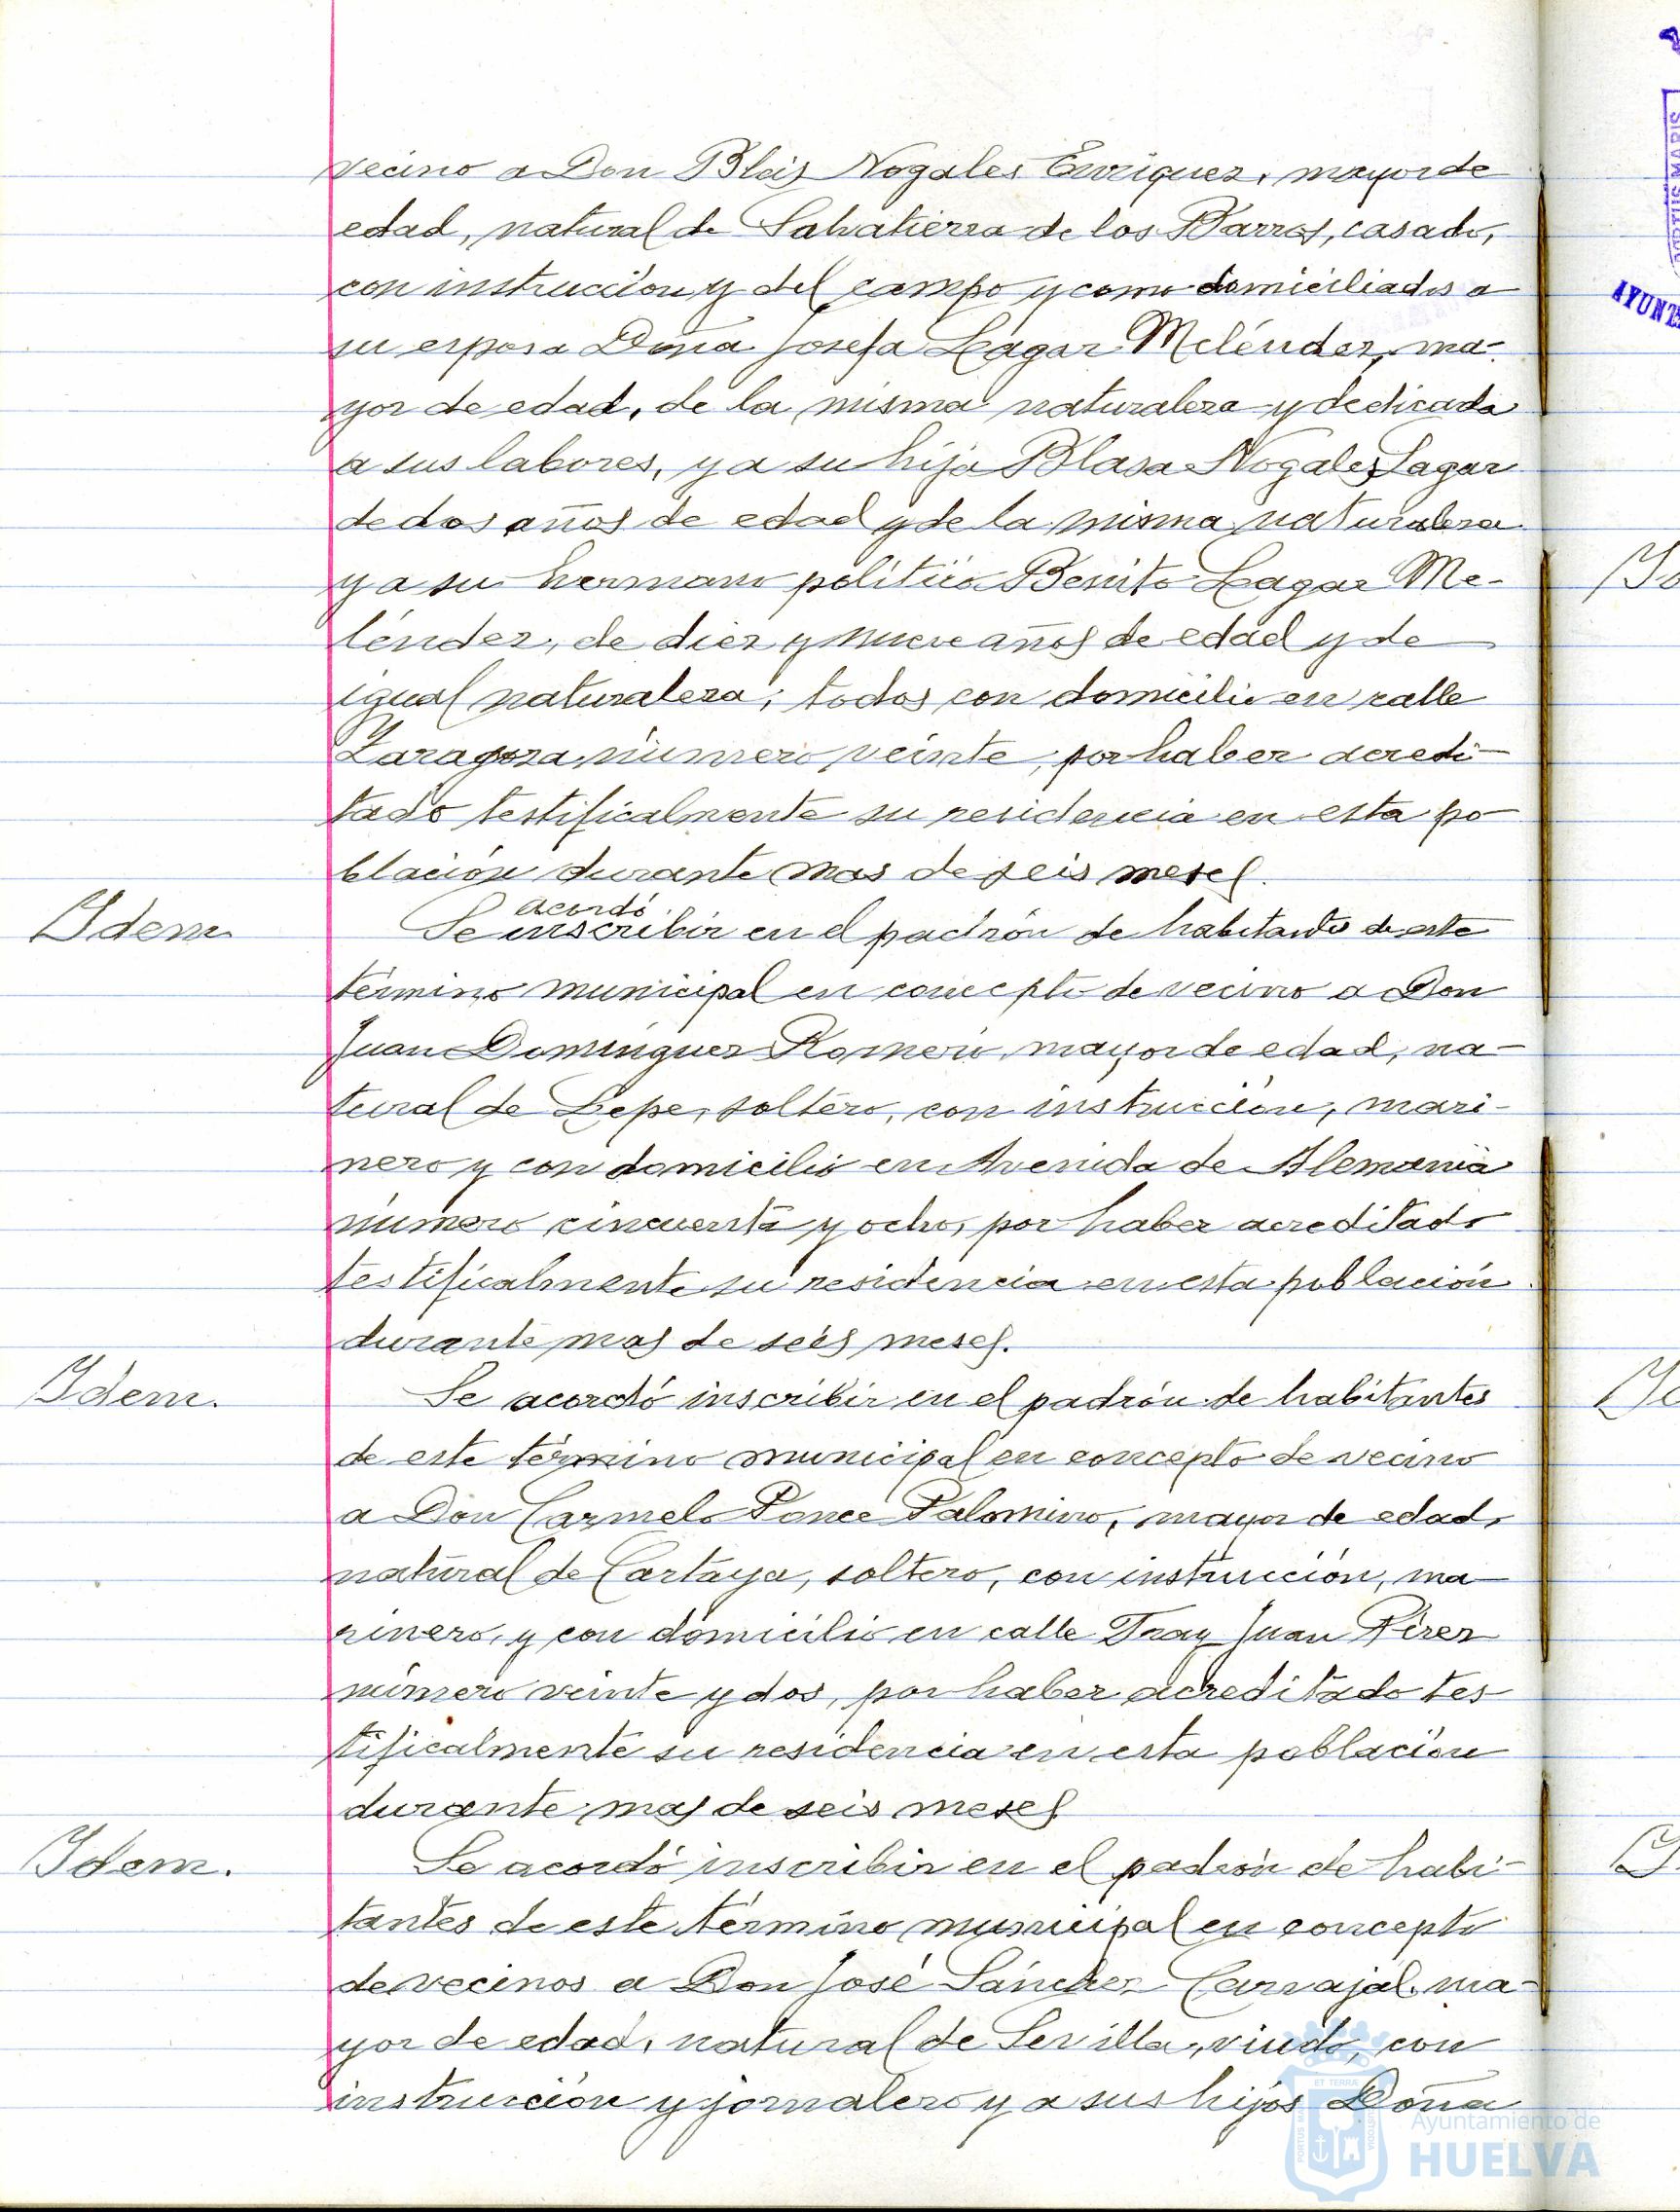 vecino a Don Blas Nogales Enriquez, mayor de
edad, natural de Salvatierra de los Barros, casado,
con instrucción y del campo y como domiciliados a
su esposa Doña Josefa Lagar Meléndez, ma-
yor de edad, de la misma naturaleza y dedicada
a sus labores, y a su hija Blasa Nogales Lagar
de dos años de edad y de la misma naturaleza
y a su hermano politico Benito Lagar Me-
léndez, de diez y nueve años de edad y de
igual naturaleza; todos con domicilio en calle
Zaragoza, número veinte, por haber acredi-
tado testificalmente su residencia en esta po-
blación durante mas de seis meses.
Idem
acordó
Se inscribir en el padrón de habitantes de este
término municipal en concepto de vecino a Don
Juan Dominguez Romero, mayor de edad, na-
tural de Lepe, soltero, con instrucción, mari-
nero y con domicilio en Avenida de Alemania
número cincuenta y ocho, por haber acreditado
testificalmente su residencia en esta población
durante mas de seis meses.
Idem.
Se acordó inscribir en el padrón de habitantes
de este término municipal en concepto de vecino
a Don Carmelo Ponce Palomino, mayor de edad,
natural de Cartaya, soltero, con instrucción, ma-
rinero, y con domicilio en calle Fray Juan Pérez
número veinte y dos, por haber acreditado tes-
tificalmente su residencia en esta población
durante mas de seis meses
Idem.
Se acordó inscribir en el padrón de habi-
tantes de este término municipal en concepto
de vecinos a Don José Sánchez Carvajal, ma-
yor de edad, natural de Sevilla, viudo, con
instrucción y jornalero y a sus hijos Doña
Ayuntamiento de
HUELVA